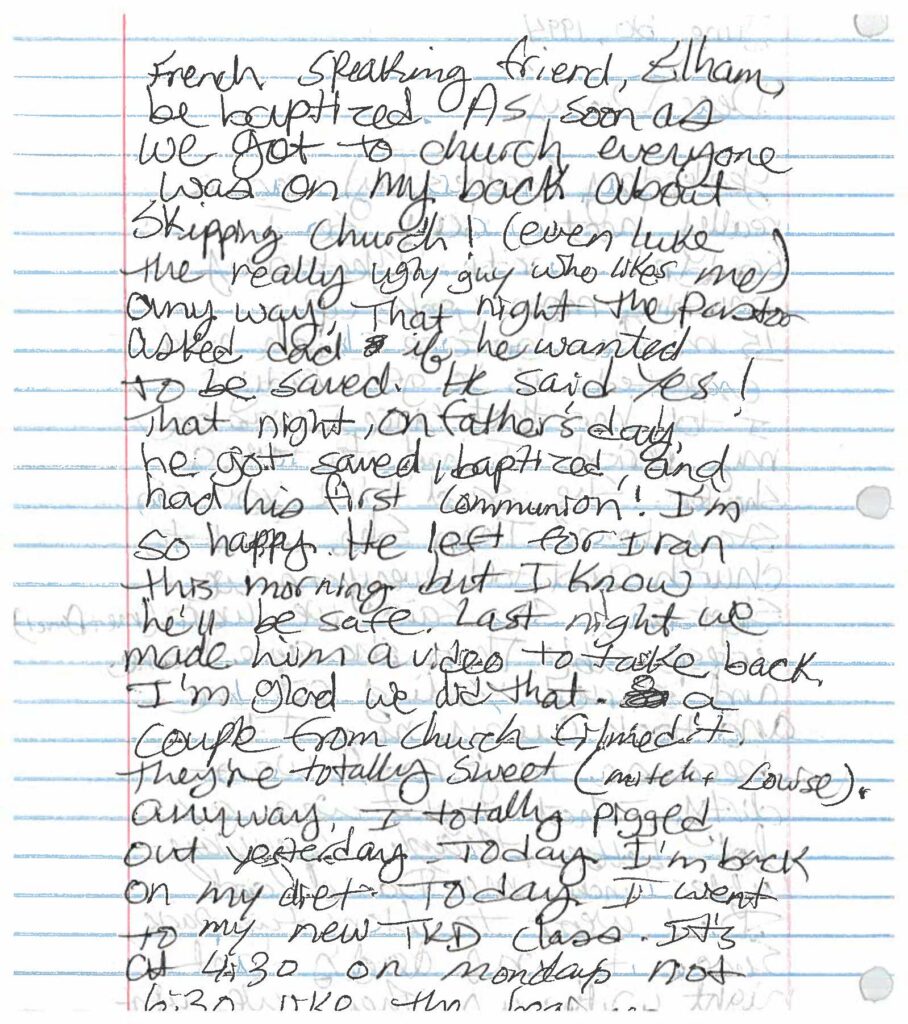 French speaking friend, Elham,
be baptized. As soon as
we got to church everyone
was on my back about
skipping church! (even Luke
the really ugly guy who likes me)
any way, That night the Pastor
asked dad if he wanted
to be saved. He said yes!
That night, on father's day,
he got saved, baptized, and
had his first communion! I'm
so happy. He left for Iran
this morning but I know
he'll be safe. Last night we
made him a video to take back.
I'm glad we did that. a
couple from church filmed it.
They're totally sweet (mitch + Louise).
anyway, I totally pigged
out yesterday. Today I'm back
on my diet. Today I went
to my new TKD class. It's
at 4:30 on mondays not
6:30 like the